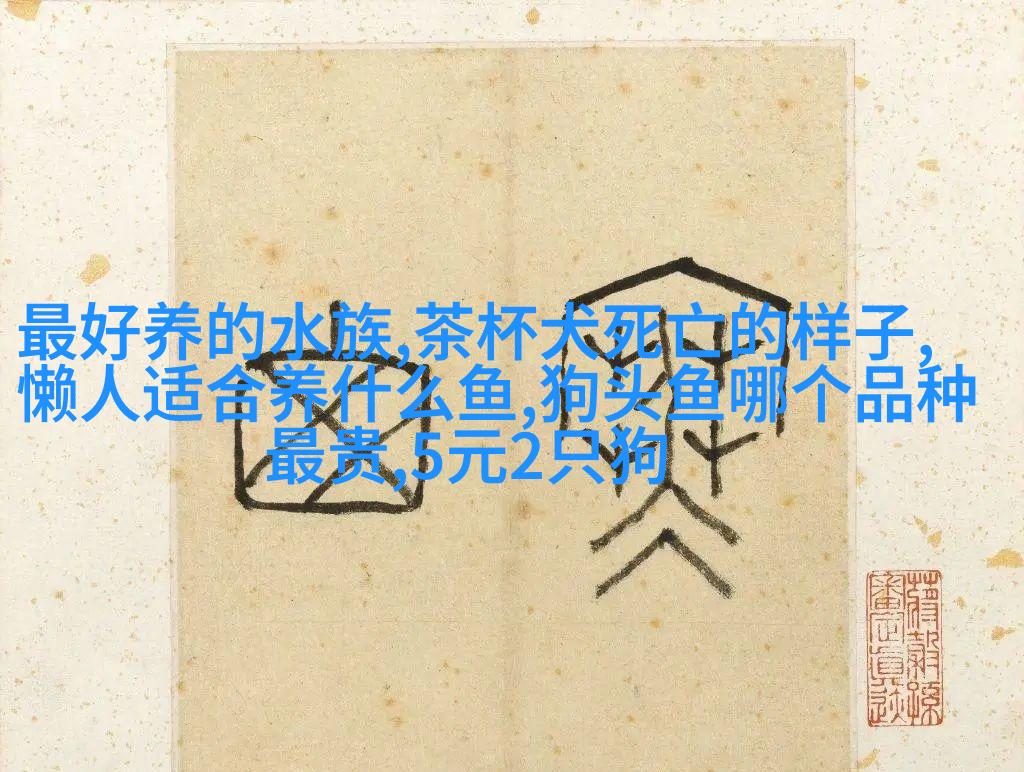 最好养的水族,茶杯犬死亡的样子,
懒人适合养什么鱼,狗头鱼哪个品种
最贵,5元2只狗